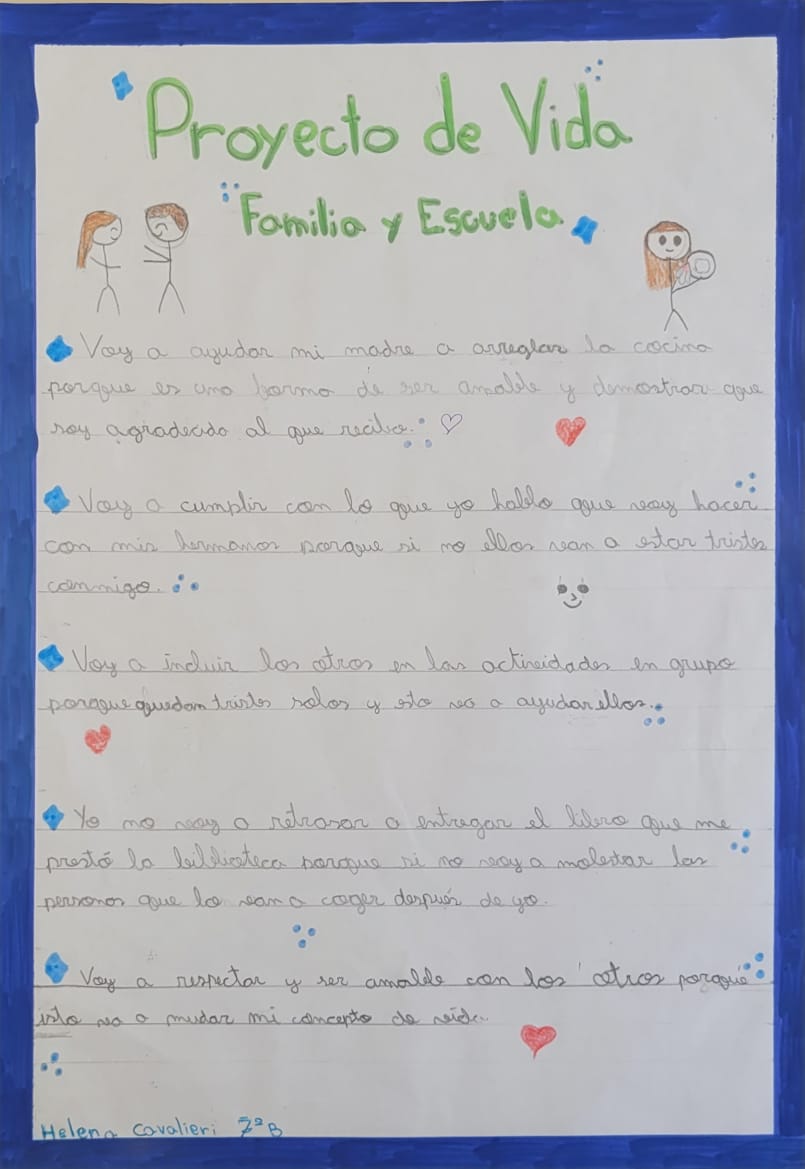 Proyecto de Vida
Familia y Escuela
Voy a ayudar mi madre a arreglar la cocina
porque es una forma de ser amable y demostrar que
soy agradecido al que recibo.
Voy a cumplir con lo que yo hablo que voy hacer
con mis hermanos porque si no ellos van a estar tristes
conmigo.
Voy a incluir los otros en las actividades en grupo
porque quedam tristes solos y esto va a ayudar ellos.
Yo no voy a retrasar a entregar el libro que me
prestó la biblioteca porque si no voy a molestar las
personas que lo van a coger después de yo.
Voy a respectar y ser amable con los otros porqué
isto va a mudar mi concepto de vida.
Helena Cavalieri 7ºB